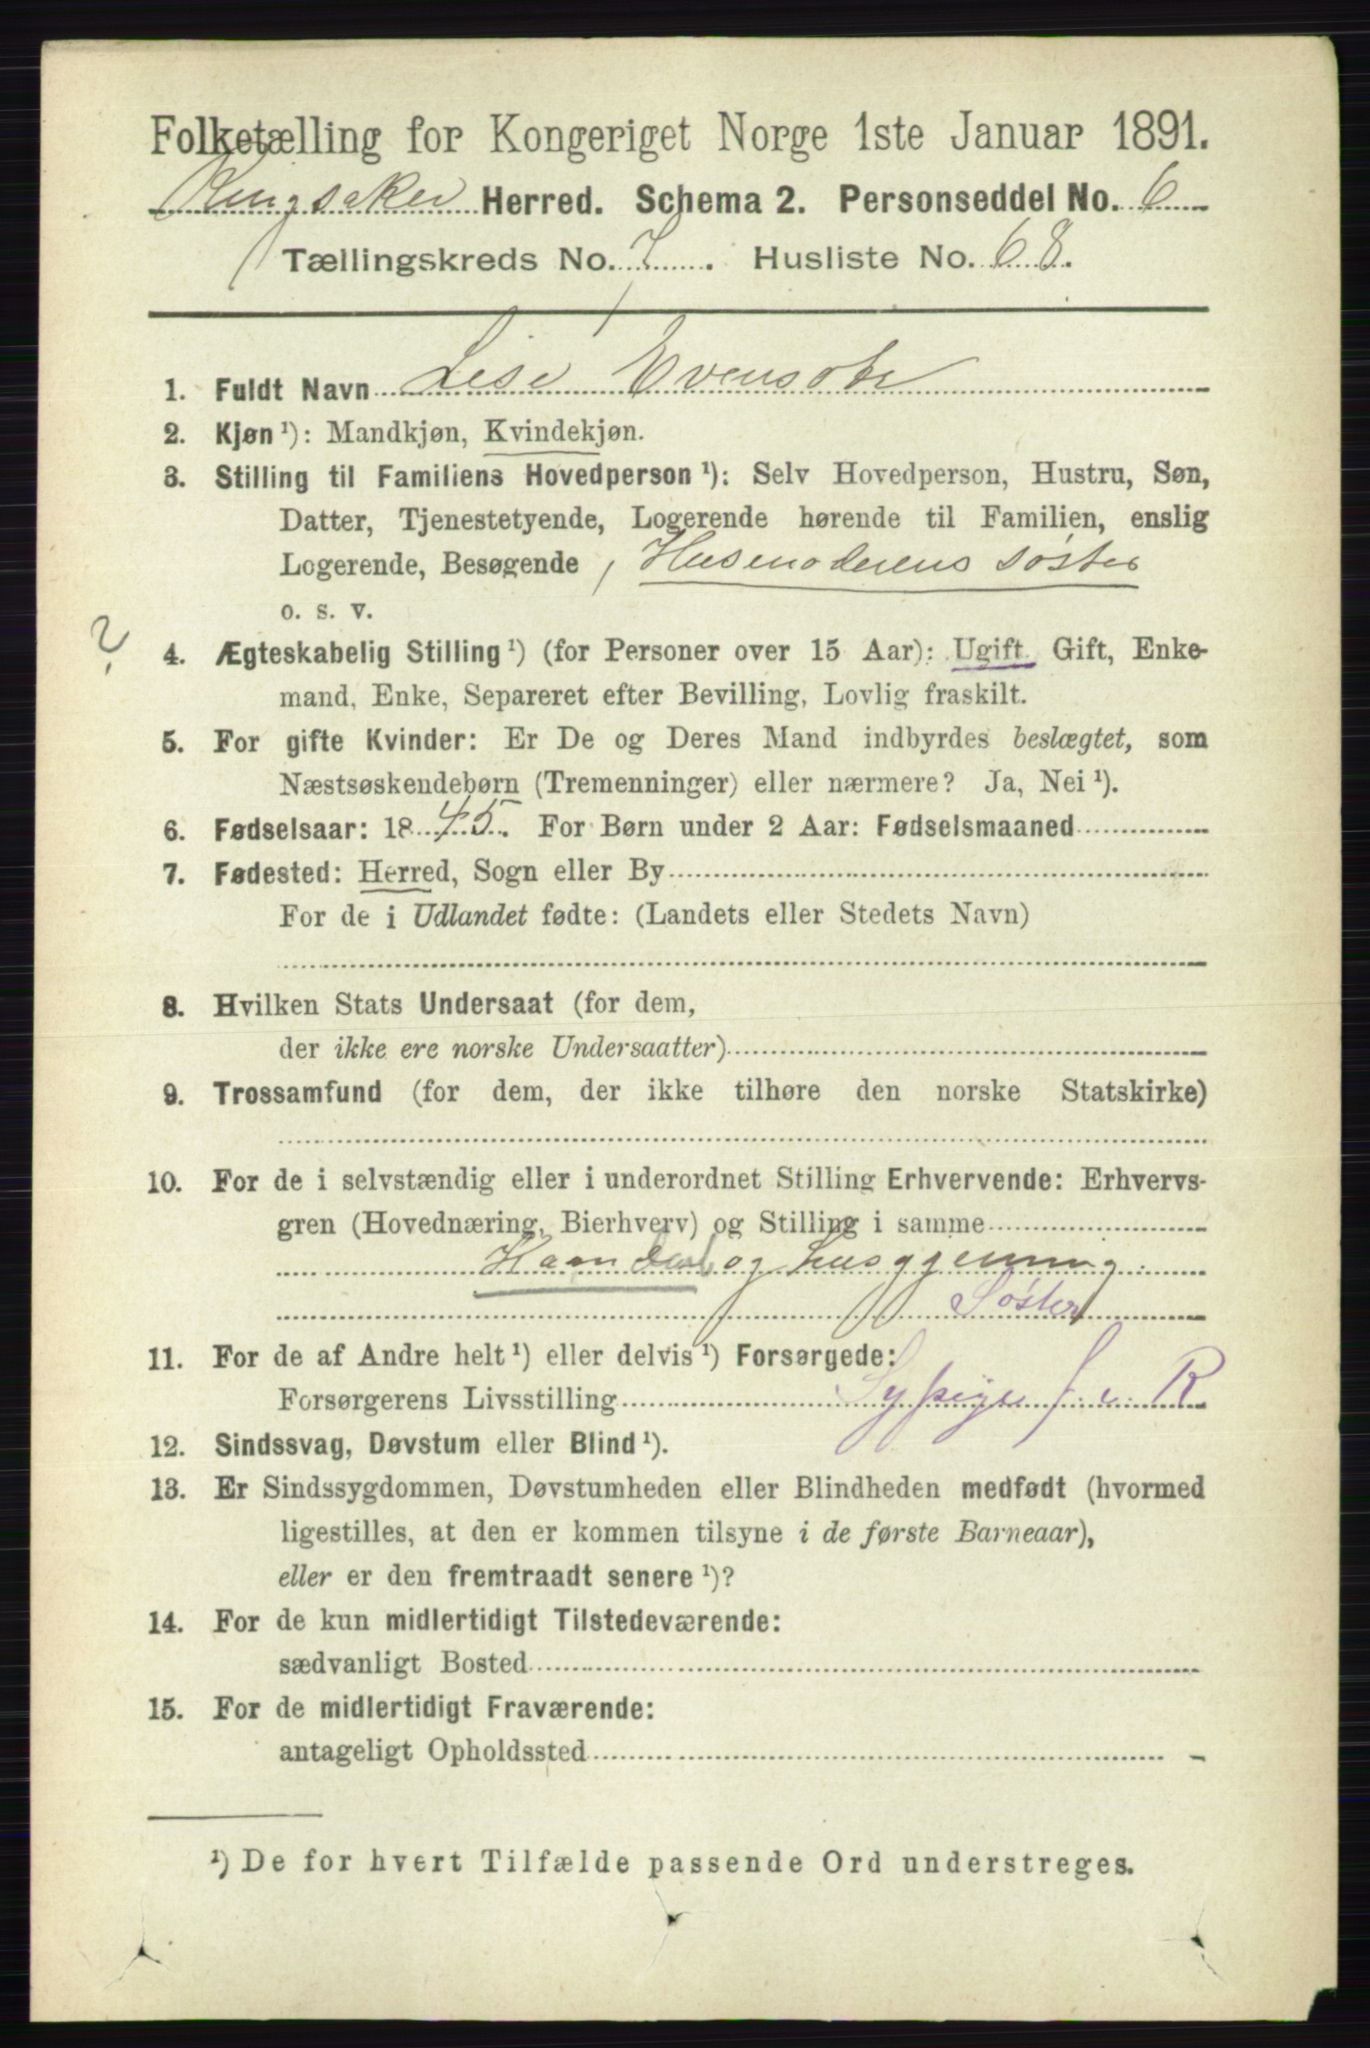 Folketælling for Kongeriget Norge 1ste Januar 1891.
Ringsaker Herred. Schema 2. Personseddel No. 6
Tællingskreds No. 7. Husliste No. 68.
1. Fuldt Navn Lise Evensdtr
2. Kjøn ¹): Mandkjøn, Kvindekjøn.
3. Stilling til Familiens Hovedperson ¹): Selv Hovedperson, Hustru, Søn,
Datter, Tjenestetyende, Logerende hørende til Familien, enslig
Logerende, Besøgende, Husmoderens søster
o. s. v.
?
4. Ægteskabelig Stilling ¹) (for Personer over 15 Aar): Ugift, Gift, Enke-
mand, Enke, Separeret efter Bevilling, Lovlig fraskilt.
5. For gifte Kvinder: Er De og Deres Mand indbyrdes beslægtet, som
Næstsøskendebørn (Tremenninger) eller nærmere? Ja, Nei ¹).
6. Fødselsaar: 1845. For Børn under 2 Aar: Fødselsmaaned
7. Fødested: Herred, Sogn eller By
For de i Udlandet fødte: (Landets eller Stedets Navn)
8. Hvilken Stats Undersaat (for dem,
der ikke ere norske Undersaatter)
9. Trossamfund (for dem, der ikke tilhøre den norske Statskirke)
10. For de i selvstændig eller i underordnet Stilling Erhvervende: Erhvervs-
gren (Hovednæring, Bierhverv) og Stilling i samme
og husgjerning
Søster
11. For de af Andre helt ¹) eller delvis ¹) Forsørgede:
Forsørgerens Livsstilling Sypige
12. Sindssvag, Døvstum eller Blind ¹).
13. Er Sindssygdommen, Døvstumheden eller Blindheden medfødt (hvormed
ligestilles, at den er kommen tilsyne i de første Barneaar),
eller er den fremtraadt senere ¹)?
14. For de kun midlertidigt Tilstedeværende:
sædvanligt Bosted
15. For de midlertidigt Fraværende:
antageligt Opholdssted
¹) De for hvert Tilfælde passende Ord understreges.